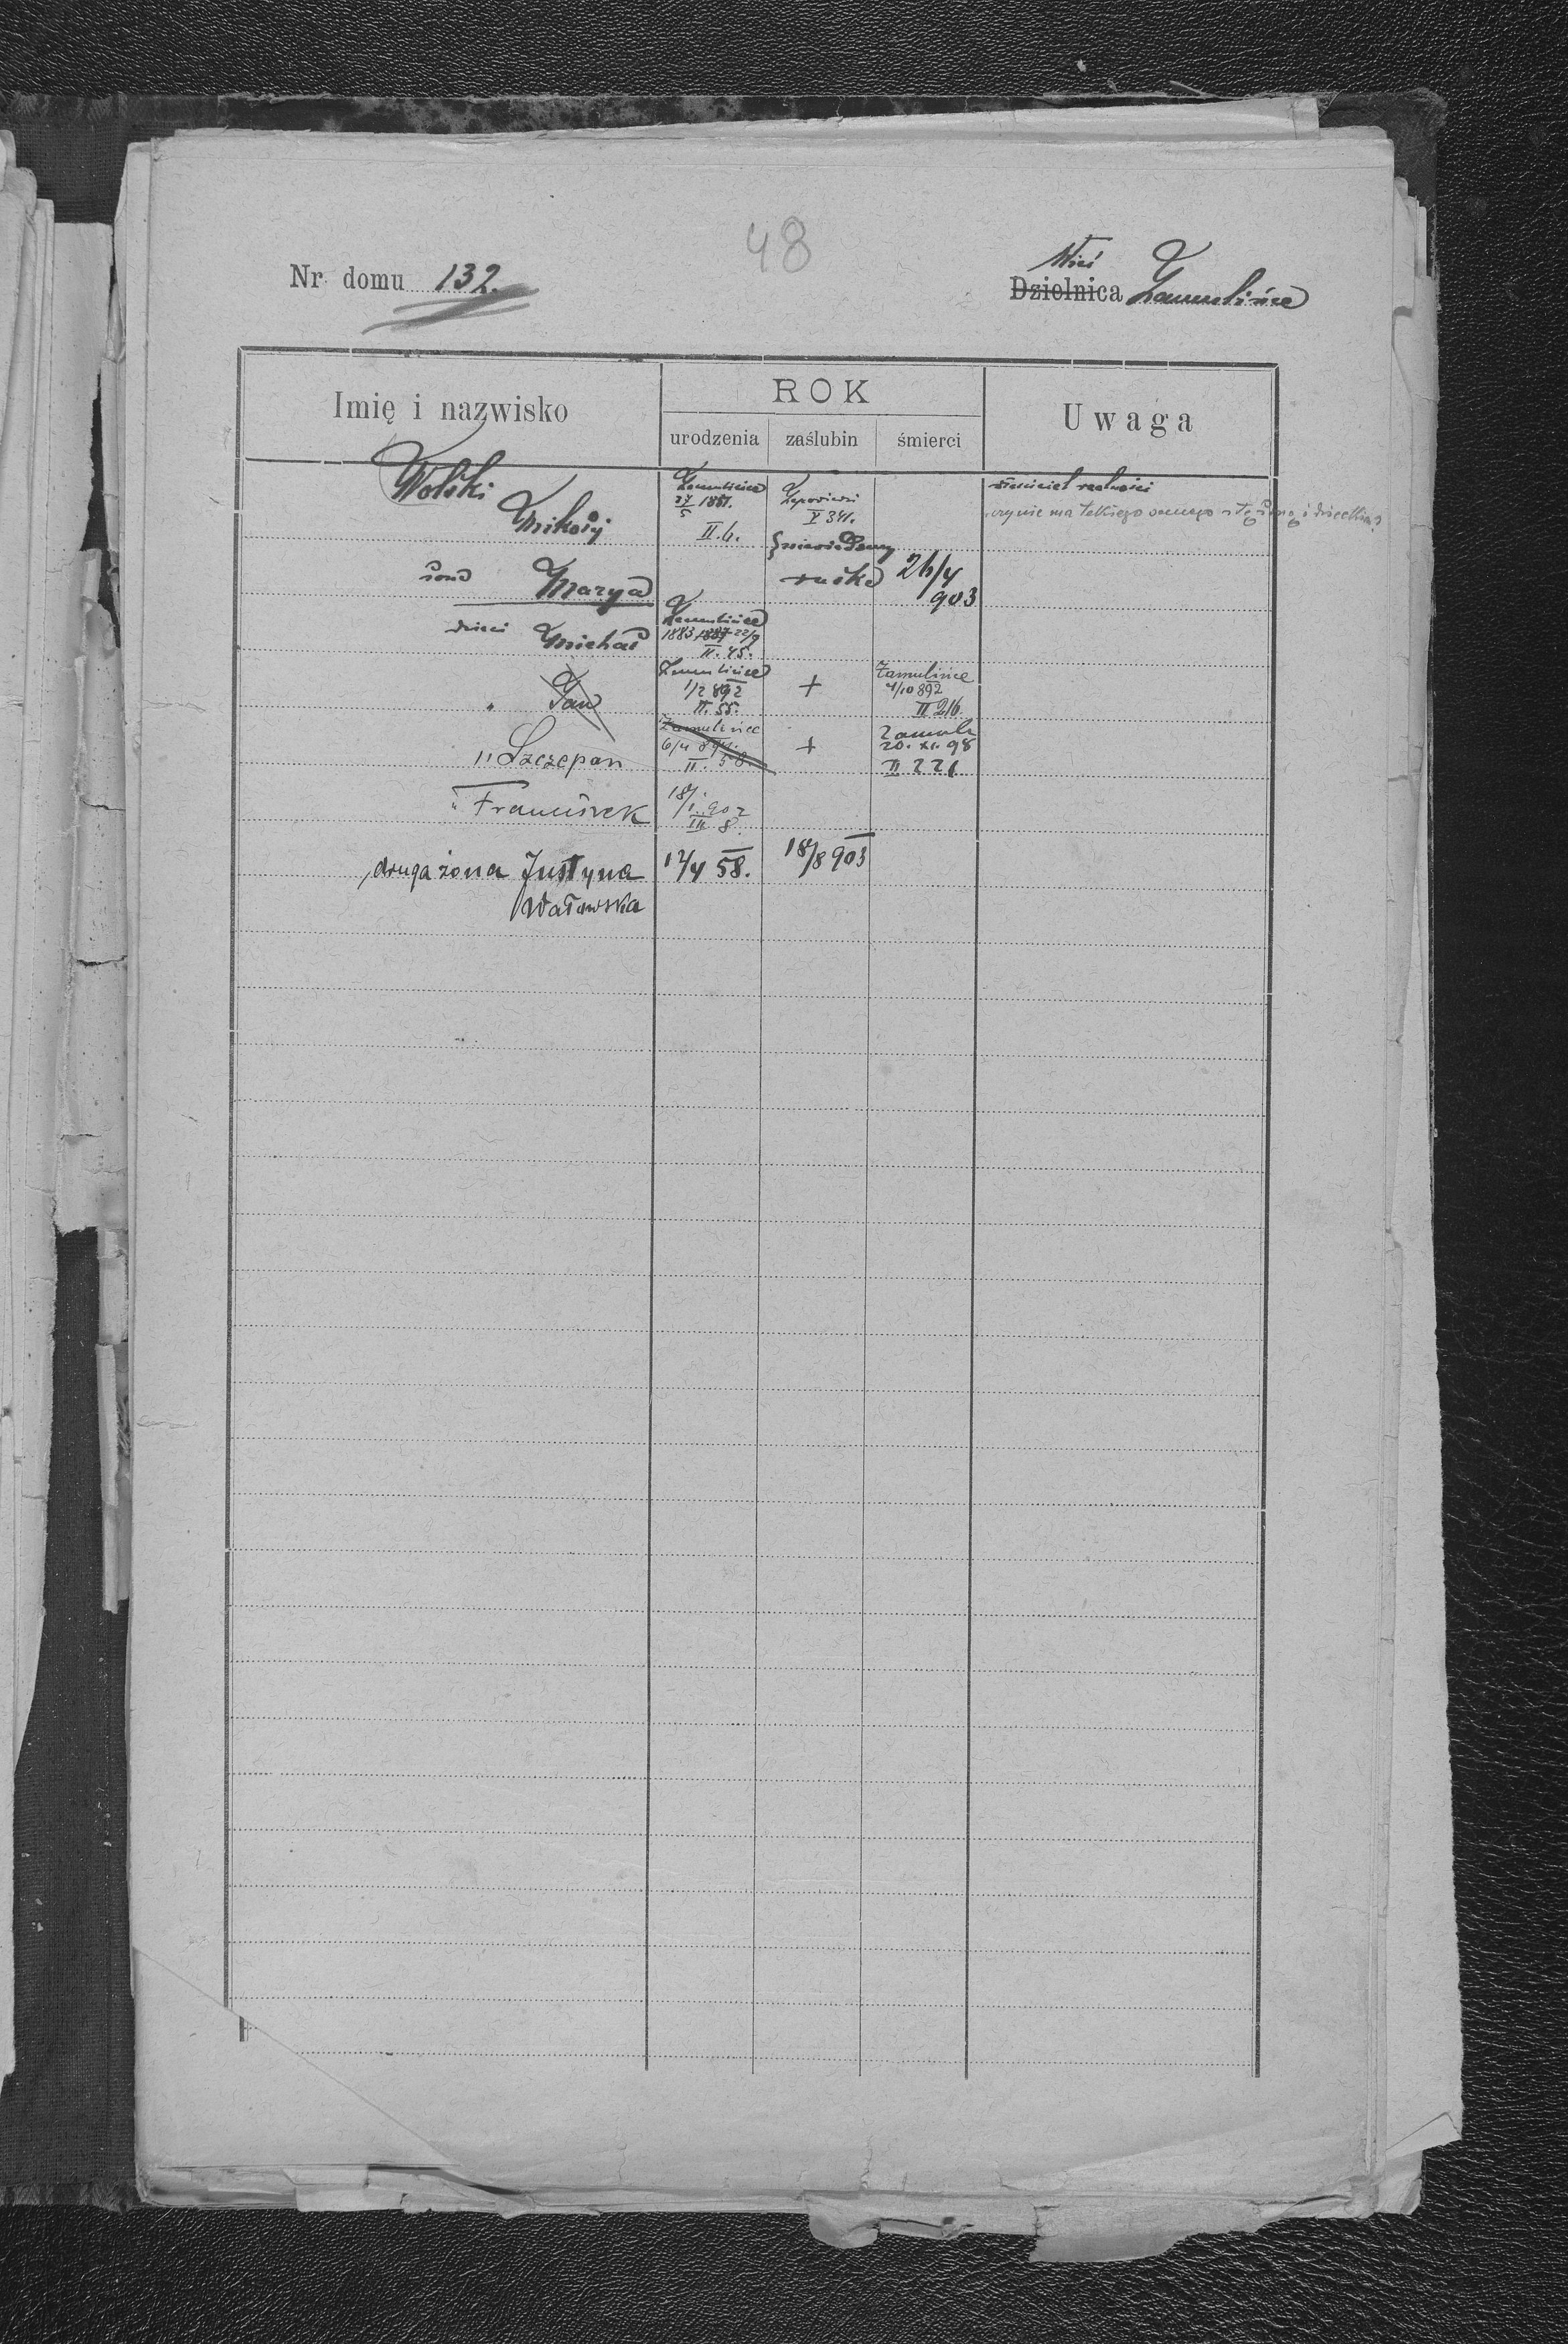 48
Nr domu 132.
Wieś
Dzielnica Zamulińce
Imię i nazwisko
ROK
urodzenia zaślubin śmierci
Uwaga
Wolski
Mikołaj
Zamulińce
27/5 1851.
II. 6.
V 341.
właściciel realności
czy nie ma takiego samego z tą żoną i dzieckiem?
żona Marya
ruska
26/4
903
dzieci Michał
Zamulińce
1883 1887 22/9
II. 45.
" Jan
Zamulińce
1/2 892
II. 55.
+
Zamulińce
4/10 892
II 216.
" Szczepan
Zamulińce
II. 58.
+
Zamul
20. XI. 98
II 221
" Franciszek
18/I. 902
III 8
druga żona Justyna
12/4 58.
18/8 903
Watowska